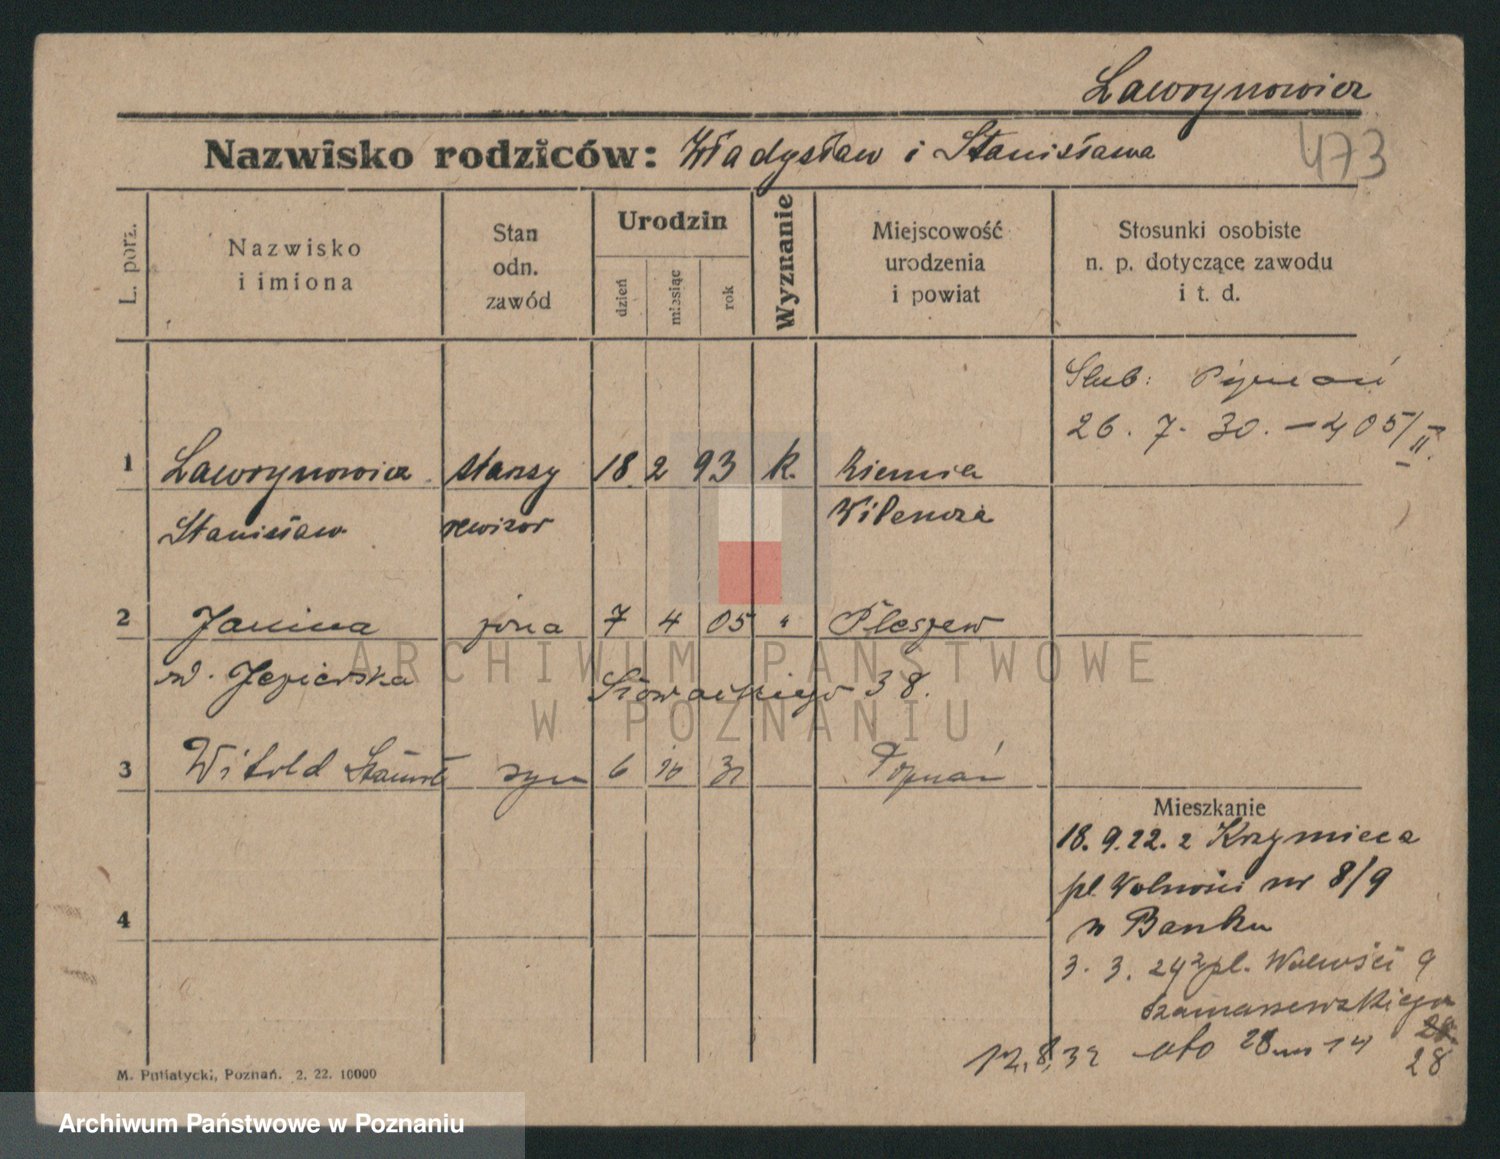 Ławrynowicz
Nazwisko rodziców: Władysław i Stanisława
473
L. porz.
Nazwisko
i imiona
Stan
odn.
zawód
Urodzin
dzień
miesiąc
rok
Wyznanie
Miejscowość
urodzenia
i powiat
Stosunki osobiste
n. p. dotyczące zawodu
i t. d.
Ślub:
26. 7. 30. – 405/II.
1 Ławrynowicz starszy 18. 2 93 k. Ziemia
Stanisław rewizor Wileńska
2 Janina żona 7 4 05 " Pleszew
Jezierska Słowackiego 38.
3 Witold syn 6 10 31 Poznań
Mieszkanie
18. 9. 22. z
pl. Wolności nr 8/9
4
w Banku
3. 3. 24 pl. Wolności 9
Szamarzewskiego
28
12. 8. 32 28 m 14
28
M. Putiatycki, Poznań. 2. 22. 10000
ARCHIWUM PAŃSTWOWE
W POZNANIU
Archiwum Państwowe w Poznaniu